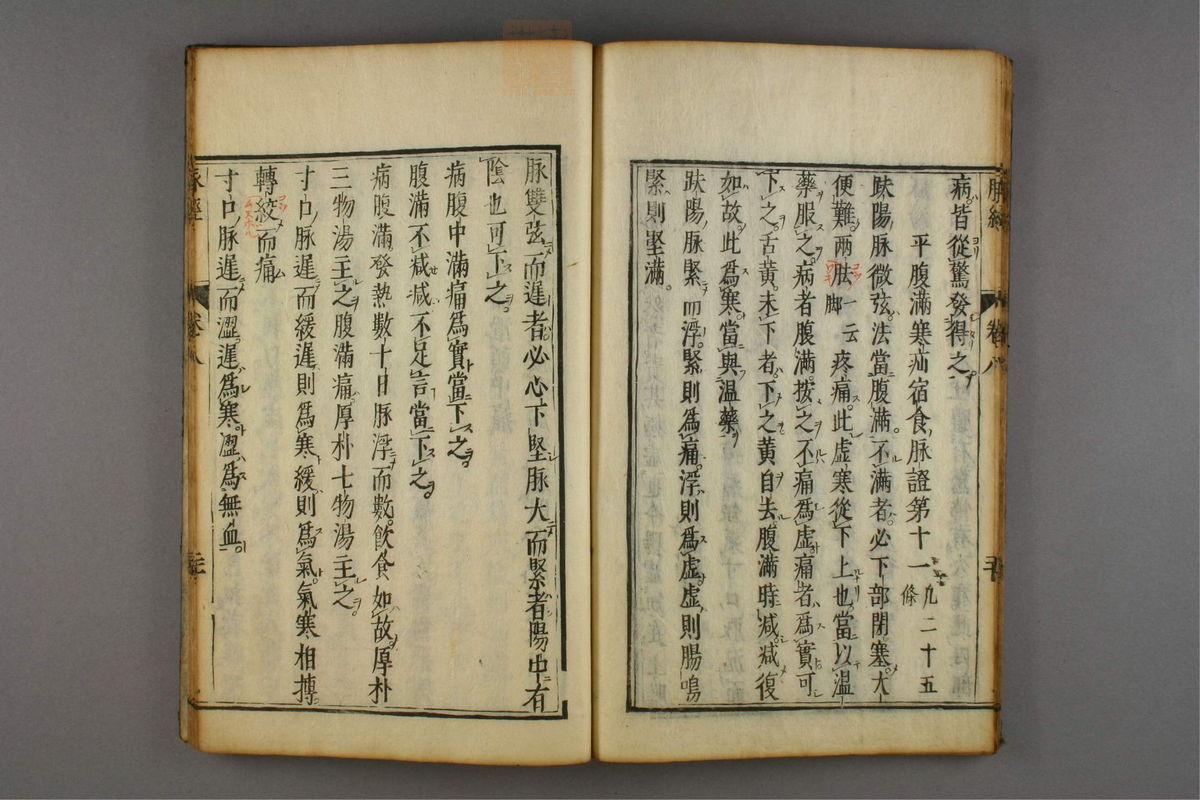 脉經
卷八
病皆從驚發得之
平腹滿寒疝宿食脉證第十一凡二十五條
趺陽脉微弦法當腹滿不滿者必下部閉塞大
便難兩胠一云脚疼痛此虛寒從下上也當以溫
藥服之病者腹滿按之不痛爲虛痛者爲實可
下之舌黃未下者下之黃自去腹滿時减减復
如故此爲寒當與溫藥
趺陽脉緊而浮緊則爲痛浮則爲虛虛則腸鳴
緊則堅滿
脉雙弦而遲者必心下堅脉大而緊者陽中有
陰也可下之
病腹中滿痛爲實當下之
腹滿不减减不足言當下之
病腹滿發熱數十日脉浮而數飲食如故厚朴
三物湯主之腹滿痛厚朴七物湯主之
寸口脉遲而緩遲則爲寒緩則爲氣氣寒相摶
轉絞而痛
寸口脉遲而澀遲爲寒澀爲無血
脉經
卷八